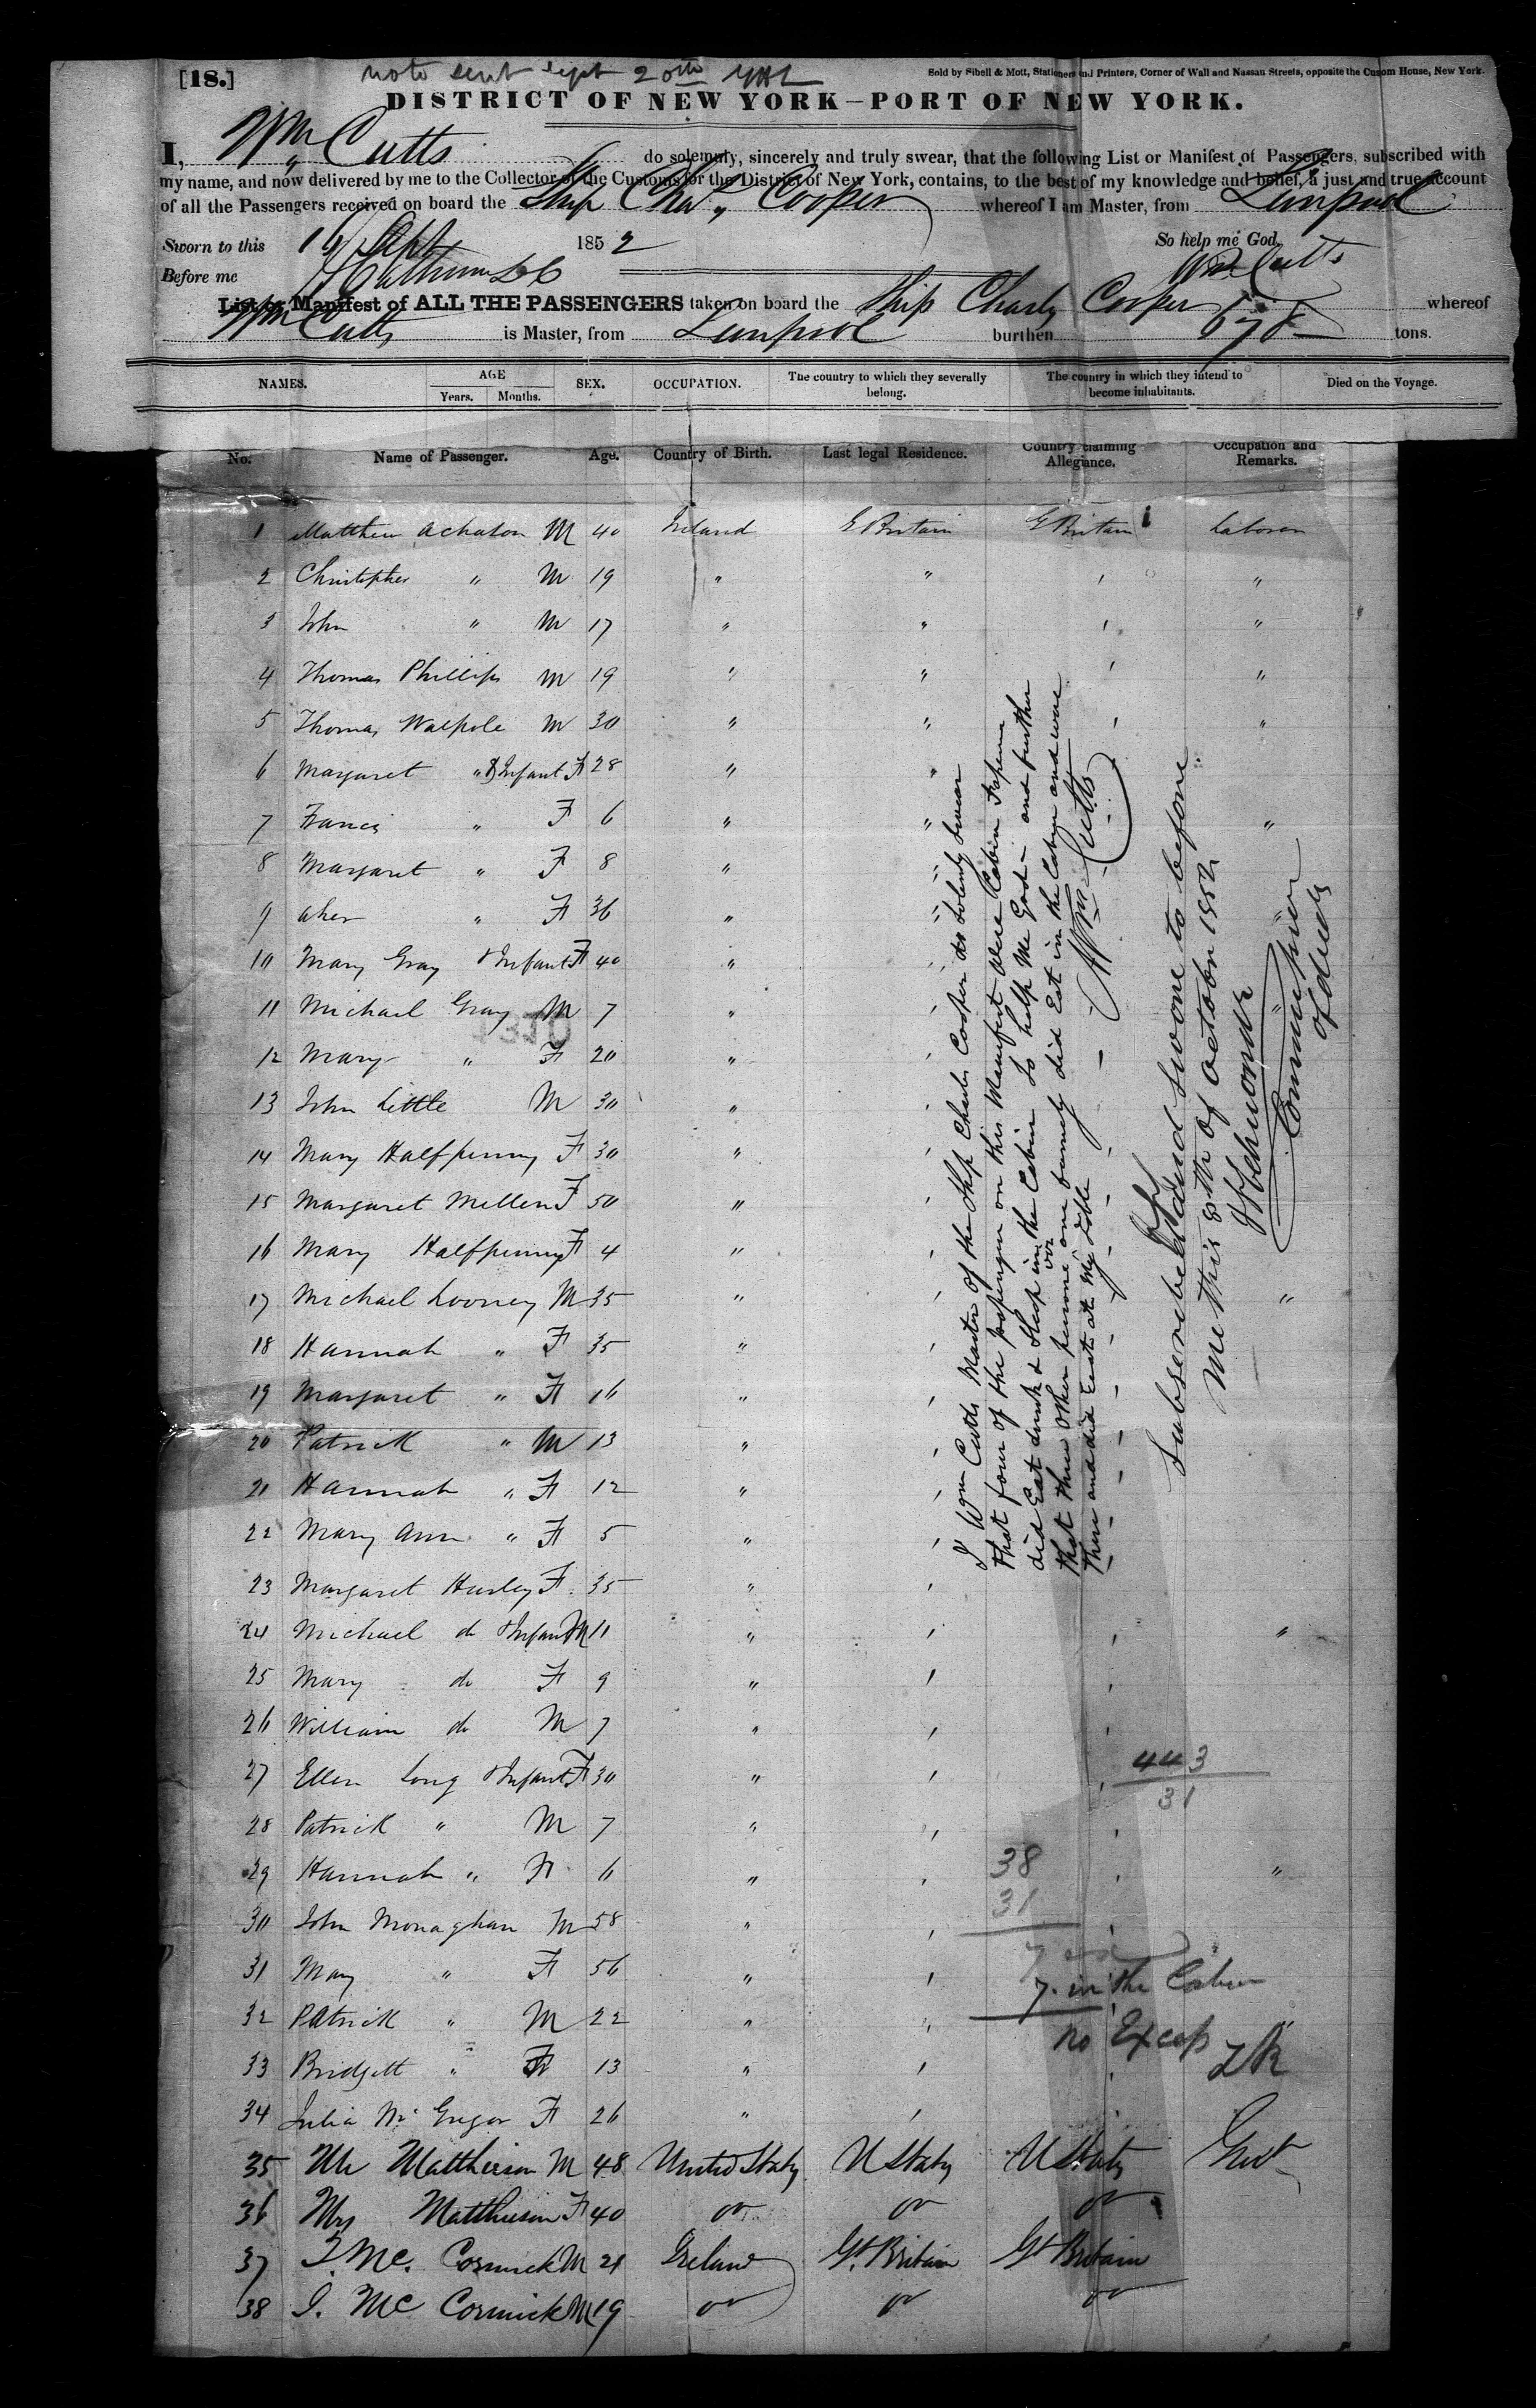 [18.] note sent Sept 20th
Sold by Sibell & Mott, Stationers and Printers, Corner of Wall and Nassau Streets, opposite the Cusom House, New York.
DISTRICT OF NEW YORK—PORT OF NEW YORK.
I, Wm Cutts do solemnly, sincerely and truly swear, that the following List or Manifest of Passengers, subscribed with
my name, and now delivered by me to the Collector of the Customs for the District of New York, contains, to the best of my knowledge and belief, a just and true account
of all the Passengers received on board the Ship Chas. Cooper whereof I am Master, from Liverpool
Sworn to this Sept 1852 So help me God.
Before me Wm Cutts
List or Manifest of ALL THE PASSENGERS taken on board the Ship Charls Cooper whereof
Wm Cutts is Master, from Liverpool burthen 678 tons.
NAMES. AGE Years. Months. SEX. OCCUPATION. The country to which they severally belong. The country in which they intend to become inhabitants. Died on the Voyage.
No. Name of Passenger. Age. Country of Birth. Last legal Residence. Country claiming Allegiance. Occupation and Remarks.
1 Matthew Achason M 40 Ireland G Britain G Britain Laborer
2 Christopher " M 19 " " ' "
3 John " M 17 " " ' "
4 Thomas Phillips M 19 " " ' "
5 Thomas Walpole M 30 " " ' "
6 Margaret " & Infant F 28 " "
7 Francis " F 6 " " "
8 Margaret " F 8 " "
9 " F 36 " "
10 Mary Gray & Infant F 40 " '
11 Michael Gray M 7 " '
12 Mary " F 20 " '
13 John Little M 30 " '
14 Mary Halfpenny F 30 " '
15 Margaret Mellen F 50 " '
16 Mary Halfpenny F 4 " '
17 Michael Looney M 35 " ' "
18 Hannah " F 35 " '
19 Margaret " F 16 " '
20 Patrick " M 13 " '
21 Hannah " F 12 " '
22 Mary Ann " F 5 " '
23 Margaret Hurley F 35 " '
24 Michael do & Infant M 11 " ' ' "
25 Mary do F 9 " ' '
26 William do M 7 " ' '
27 Ellen Long & Infant F 30 " ' '
28 Patrick " M 7 " ' '
29 Hannah " F 6 " ' ' "
30 John Monaghan M 58 " ' '
31 Mary " F 56 " '
32 Patrick " M 22 " '
33 Bridgett " F 13 " ' '
34 Julia McGregor F 26 " '
35 Mr Matthieson M 48 United States U States U States Gent
36 Mrs Matthieson F 40 do do do
37 T. Mc. Cormick M 21 Ireland Gt. Britain Gt Britain
38 J. Mc Cormick M 19 do do do
I Wm Cutts Master of the Ship Charles Cooper do Solemly Swear
that four of the passengers on this Manifest were Cabin Passengers
did Eat drink & Sleep in the Cabin So help Me God — and further
that three other persons one family did Eat in the Cabin and were
there and did Eat at My Table
Wm Cutts
Subscribed and sworne to before
me this 8th of october 1852
Commissioner
of deeds
443
31
38
31
7 in the Cabin
no Excess